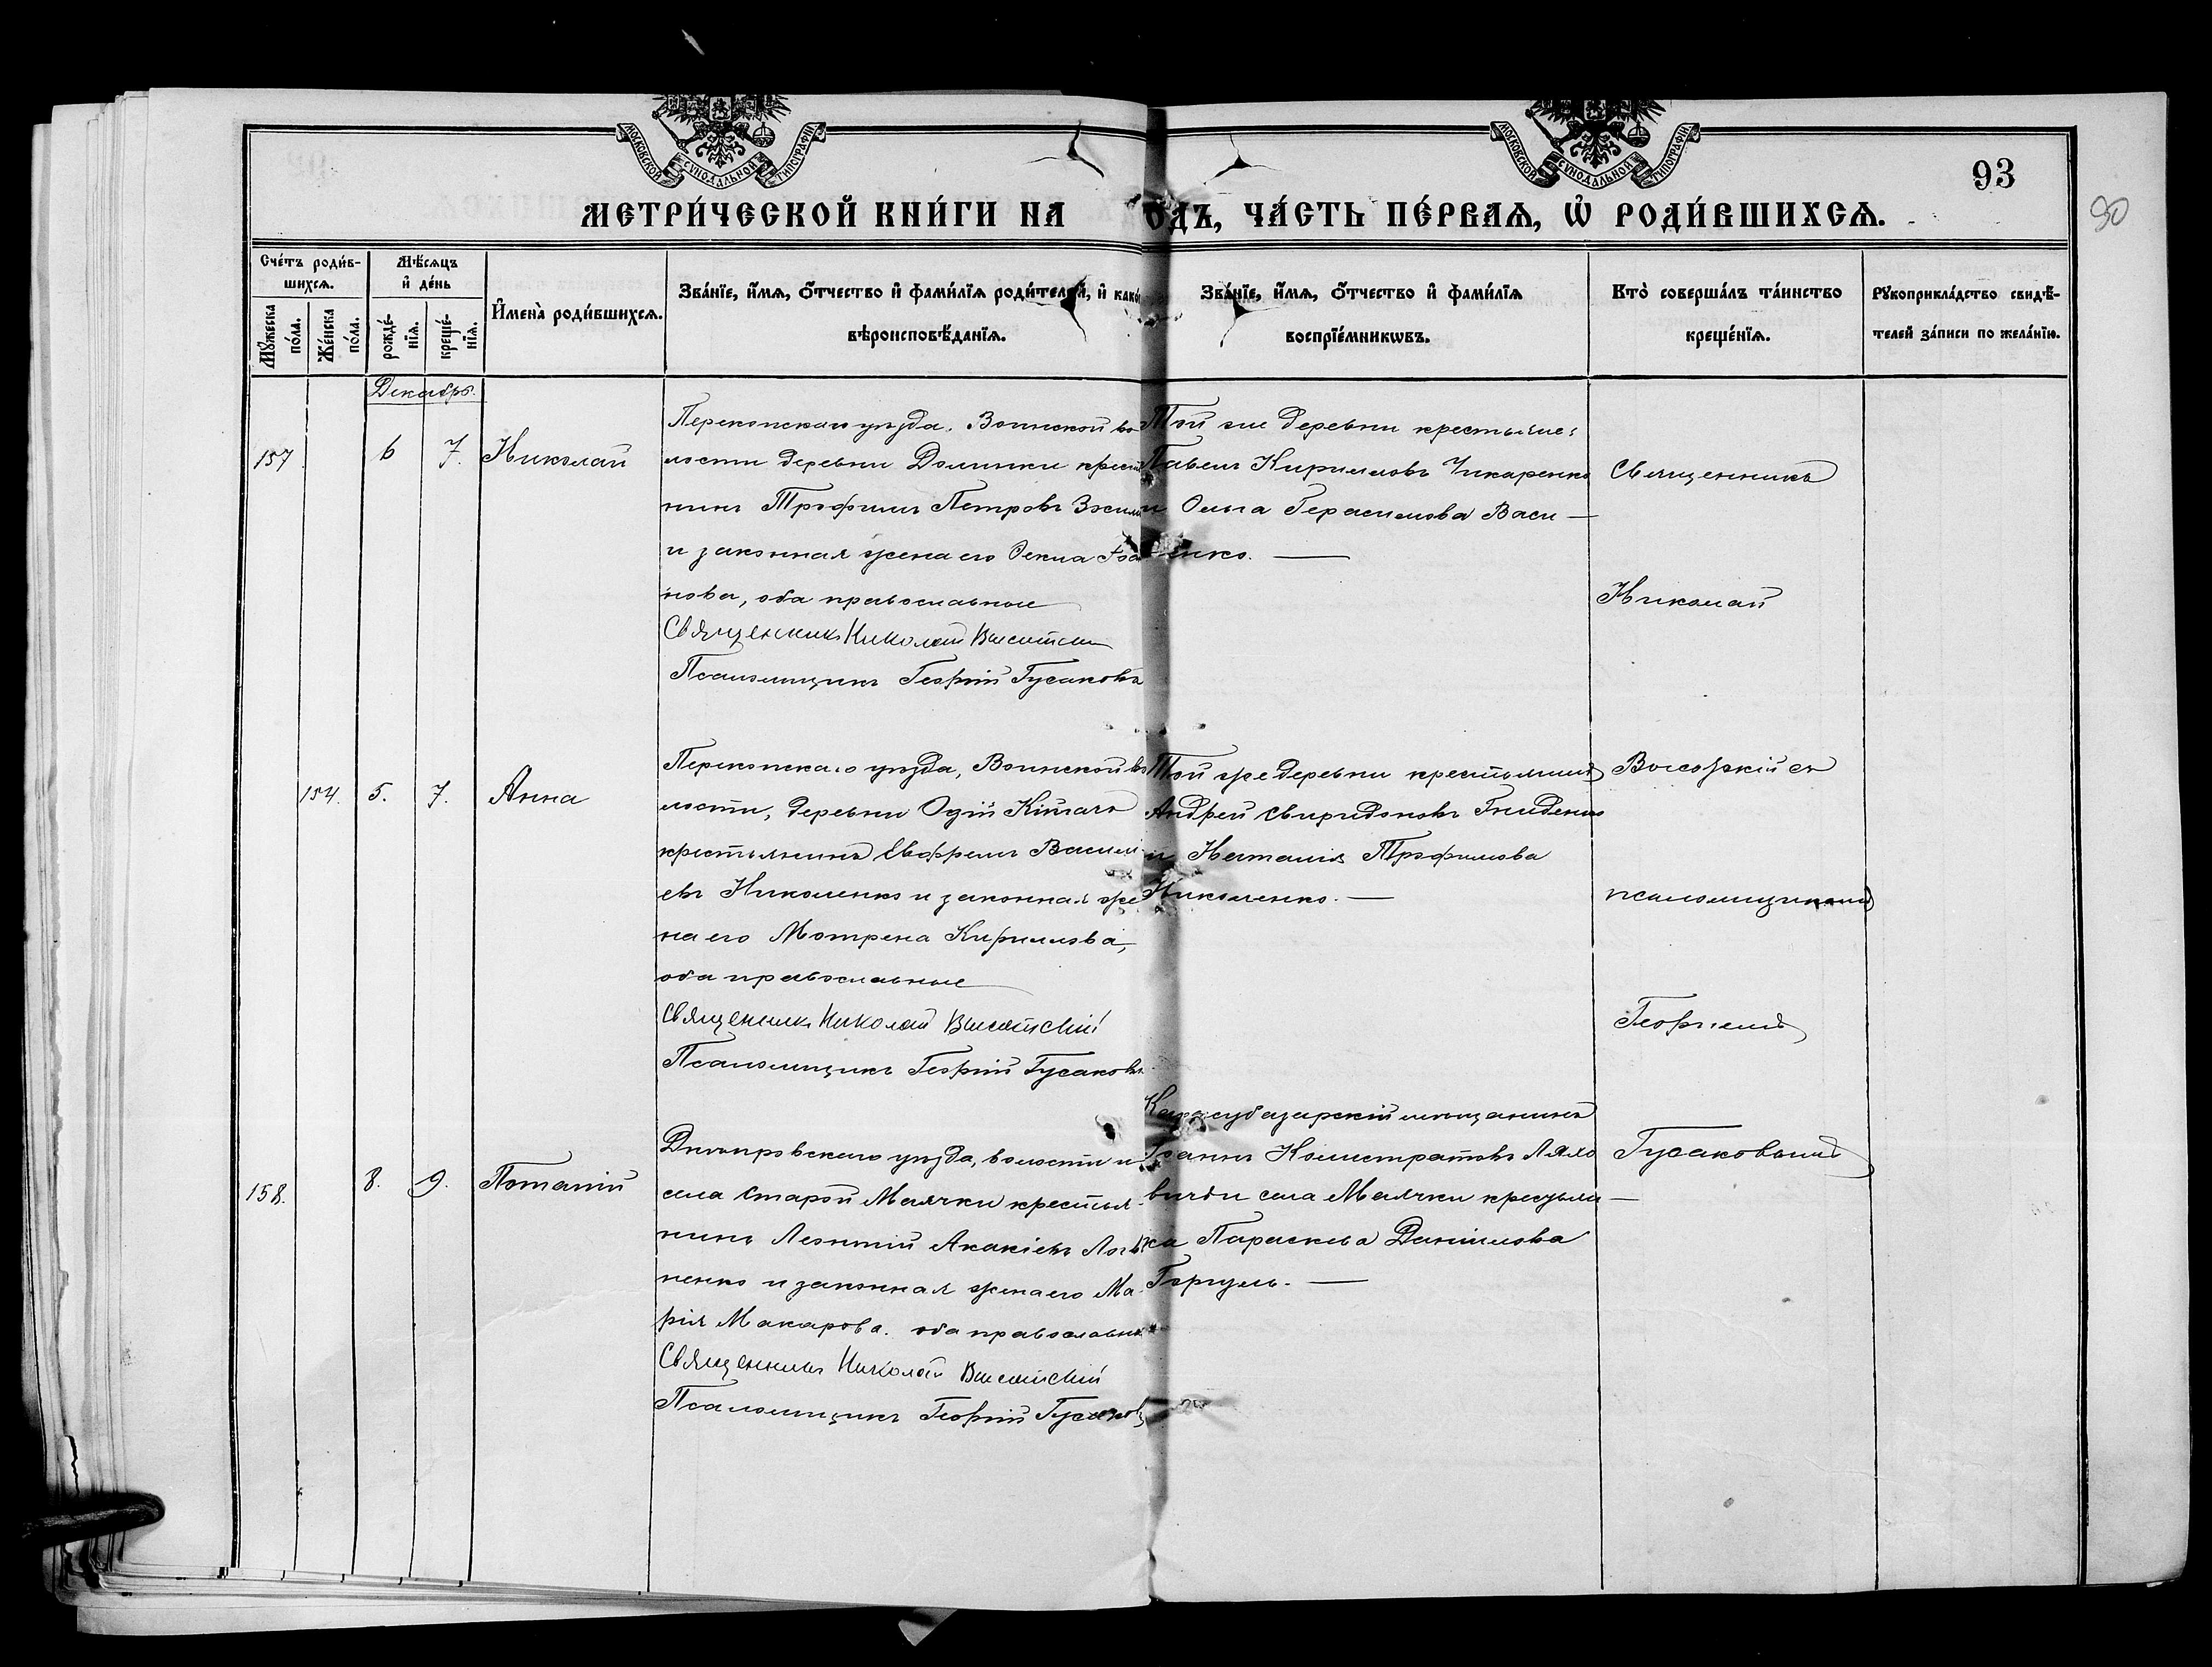 МОСКОВСКОЙ СѴНОДАЛЬНОЙ ТИПОГРАФІИ
МОСКОВСКОЙ СѴНОДАЛЬНОЙ ТИПОГРАФІИ
93
90
МЕТРИ́ЧЕСКОЙ КНИ́ГИ НА ОДЪ, ЧА́СТЬ ПЕ́РВАѦ, Ѡ РОДИ́ВШИХСѦ.
Счéтъ роди́в-
шихсѧ.
Мꙋ́жеска
по́ла.
Жéнска
по́ла.
Мѣ́сѧцъ
и҆ дéнь
рождé-
нїѧ.
крещé-
нїѧ.
И҆менà роди́вшихсѧ.
Звáнїе, и҆́мѧ, ѻ҆́тчество и҆ фами́лїѧ роди́телей, и҆ како́
вѣроисповѣ́данїѧ.
Звáнїе, и҆́мѧ, ѻ҆́тчество и҆ фами́лїѧ
воспрїéмникѡвъ.
Кто̀ совершáлъ тáинство
крещéнїѧ.
Рꙋкоприклáдство свидѣ́-
телей зáписи по желáнїю.
Декабрь.
157 6 7. Николай
Перекопскаго уѣзда, Воинской во
лости деревни Долинки крестья
нинъ Трофимъ Петровъ
и законная жена его
нова, оба православные
Священникъ Николай
Псаломщикъ Георгій Гусаковъ
Той же деревни крестьяне:
Павелъ Кирилловъ Чикаренко
и Ольга Герасимова Васи —
енко. —
Священникъ
Николай
154. 5. 7. Анна
Перекопскаго уѣзда, Воинской во
лости, деревни
крестьянинъ Евфремъ Василі
евъ Николенко и законная же
на его Мотрена Кириллова,
оба православные
Священникъ Николай
Псаломщикъ Георгій Гусаковъ
Той же деревни крестьянинъ
Андрей Свиридоновъ Гниденко
и Наталія Трофимова
Николенко. —
съ
псаломщикомъ
Георгіемъ
158. 8. 9. Потапій
Днѣпровскаго уѣзда, волости и
села Старой Маячки крестья-
нинъ Леонтій Акакіевъ
ненко и законная жена его Ма-
рія Макарова. оба православные
Священникъ Николай
Псаломщикъ Георгій Гусаковъ
Карасубазарскій мѣщанинъ
Іоаннъ Каллистратовъ
и села Маячки крестьян —
ка Параскева Даніилова
Горгуль. —
Гусаковымъ